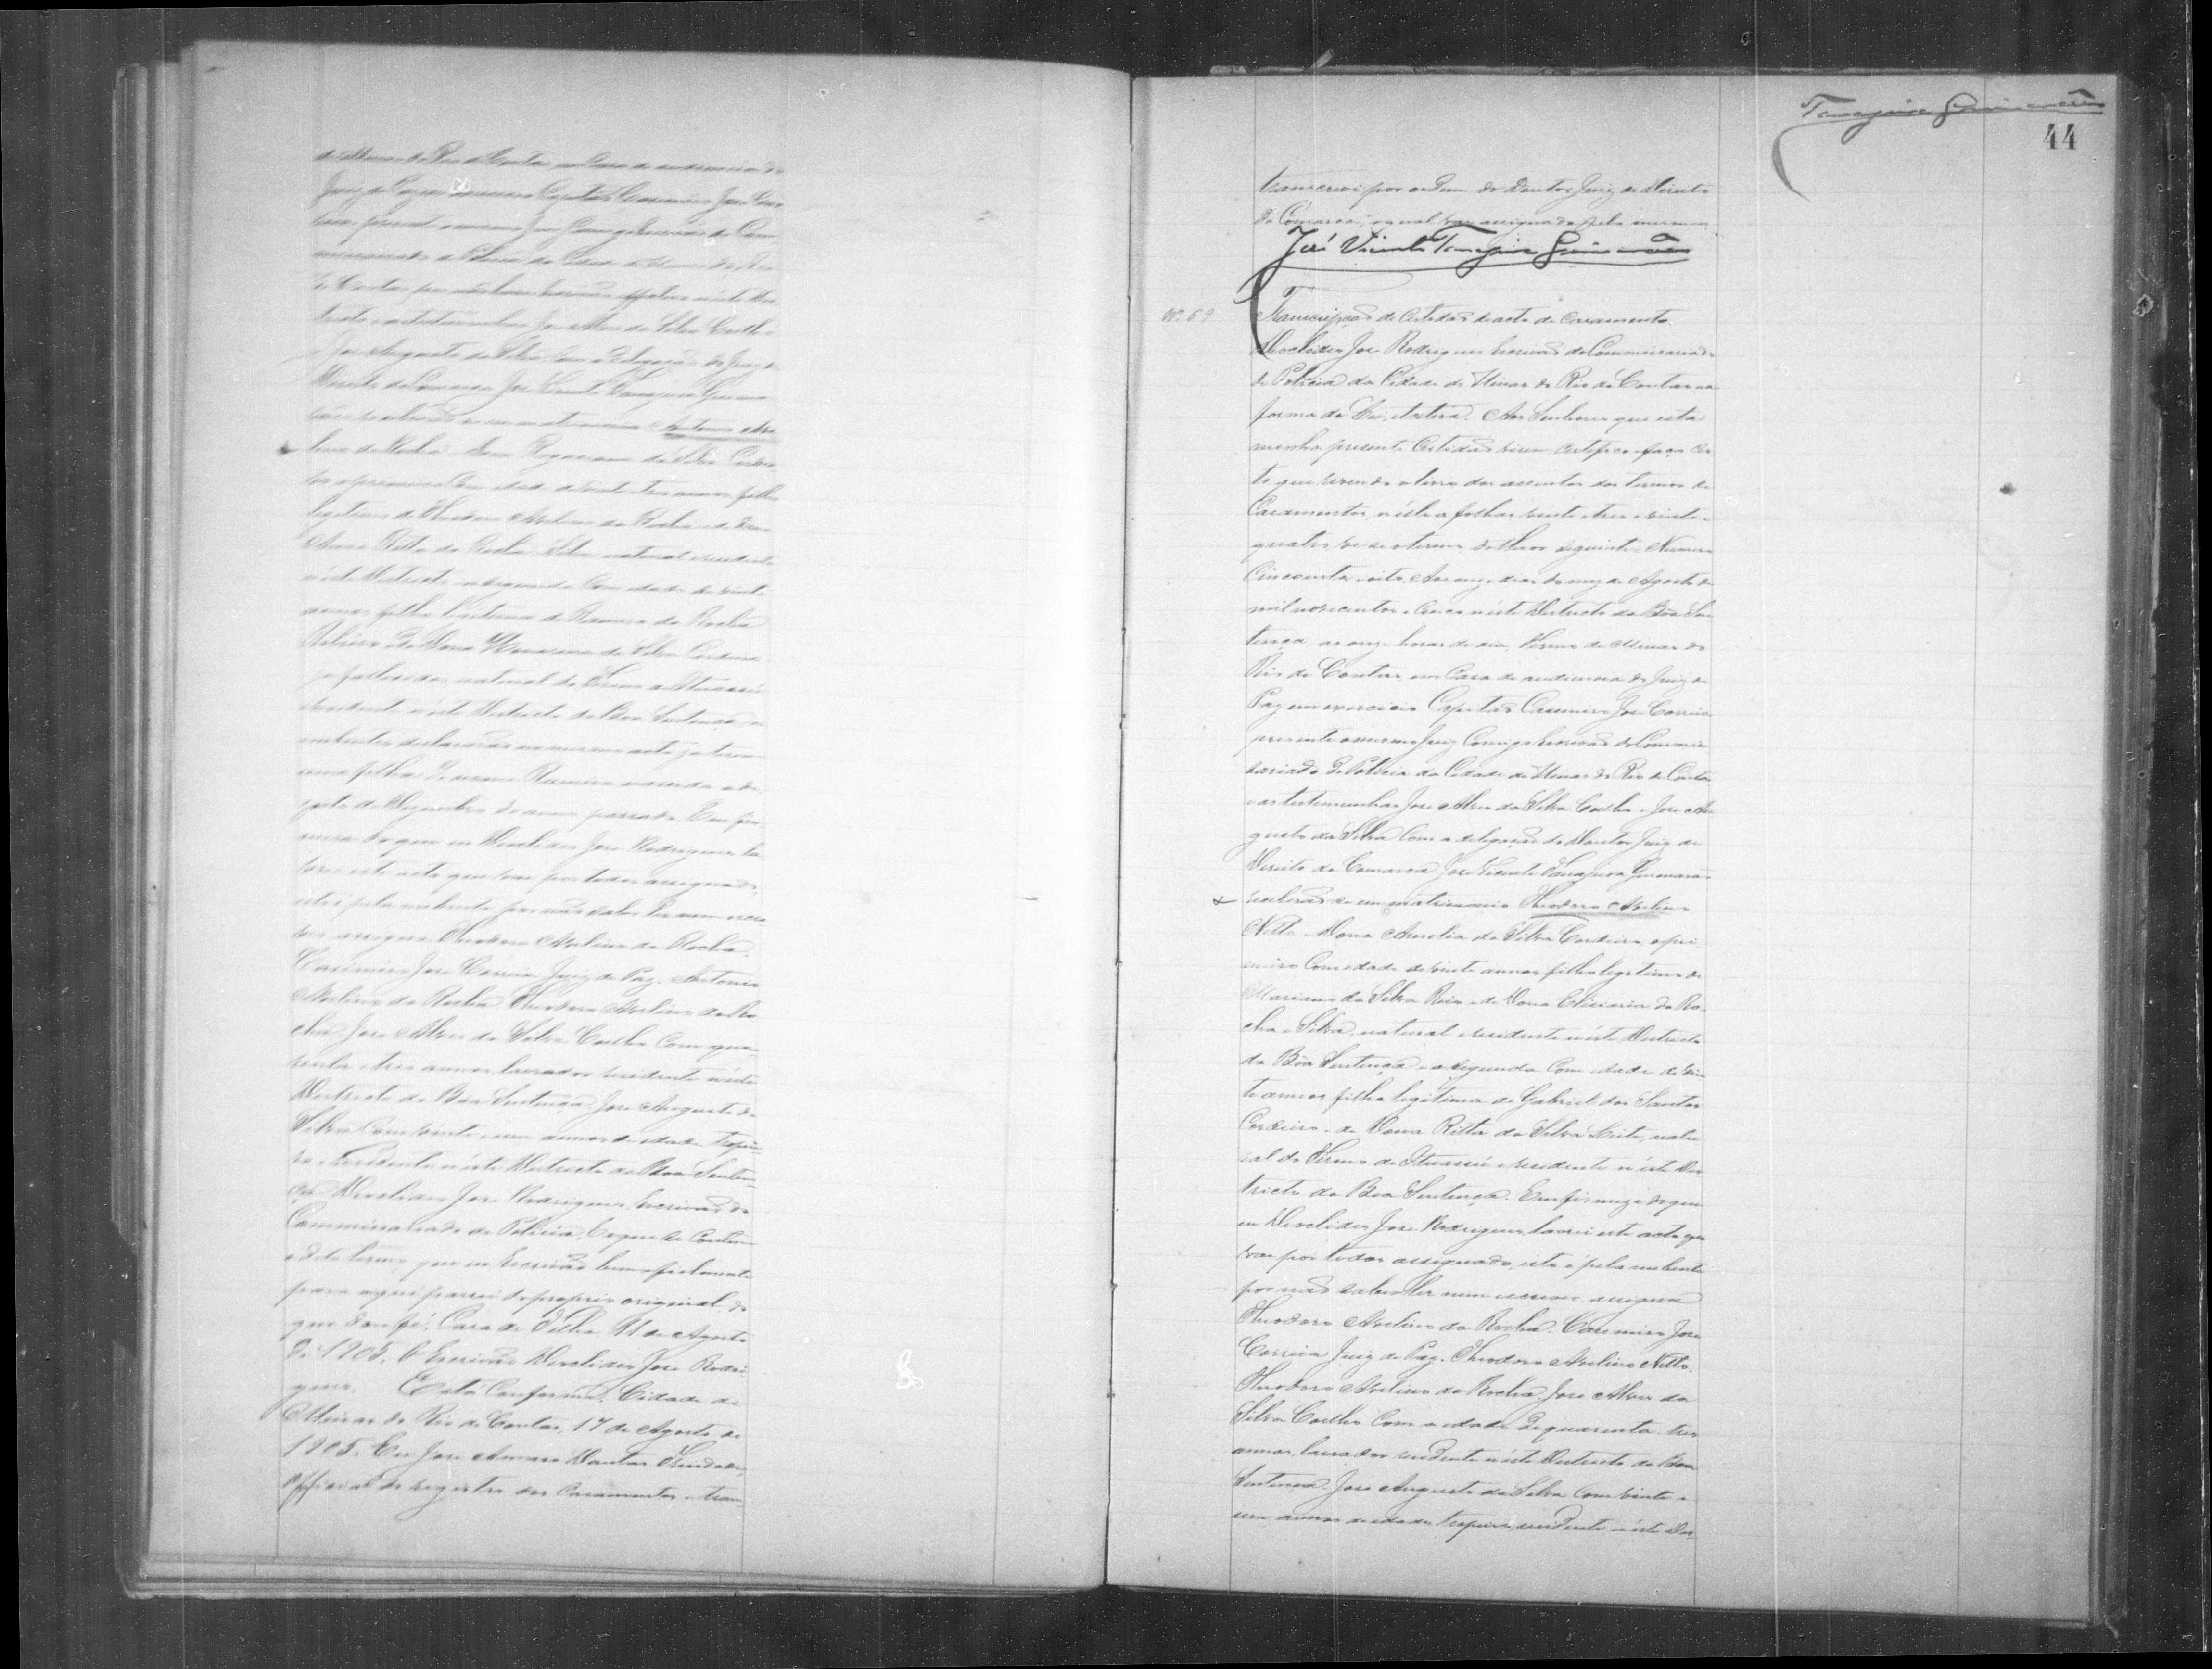 de Minas do Rio de Contas em Casa de audiencia do
Juiz de Paz em exercicio Capitão Casemiro José Cor
reia, presente o mesmo Juiz Comigo Escrivão do Com
missariado de Policia da Cidade de Minas do Rio
de Contas,
tricto e as testemunhas José Alves da Silva Coelho
e José Augusto da Silva Com a delegação do Juiz de
Direito da Comarca José Vicente Tanajura Guima
rães receberão-se em matrimonio Antonio Ave
lino da Rocha e Dona da Silva Cordei
ro o primeiro Com idade de vinte e tres annos filho
legitimo de Theodoro Avelino da Rocha e de Dona
Anna Rita da Rocha e Silva natural e residente
n'este Districto e a segunda Com idade de vinte
annos filha legitima de Ramiro da Rocha
Ribeiro e de Dona da Silva Cordeiro
ja fallecida, natural do Termo de Ituassú
e residente n'este Districto da Boa Sentença, os
nubentes declararão no mesmo acto ja terem
uma filha de nome nascida a de
zoito de Dezembro do anno passado. Em fir
meza do que eu Diocleides José Rodrigues la
vrei este acto que vae por todos assignado,
isto é pela nubente por não saber ler nem escre
ver assigna Theodoro Avelino da Rocha.
Casimiro José Correia Juiz de Paz. Antonio
Avelino da Rocha. Theodoro Avelino da Ro
cha. José Alves da Silva Coelho Com qua
renta e tres annos lavrador residente n'este
Districto da Boa Sentença José Augusto da
Silva Com vinte e um annos de idade tropei
ro e residente n'este Districto da Boa Senten
ça Diocleides José Rodrigues Escrivão do
Commissariado de Policia. E o que se Contem
o dito termo que eu Escrivão bem e fielmente
para aqui passei do proprio original do
que dou fé. Casa de Telha 11 de Agosto
de 1905. O Escrivão Diocleides José Rodri
gues. Está Conforme. Cidade de
Minas do Rio de Contas, 17 de Agosto de
1905. Eu José Amaro Dantas Trindade,
Official do registro dos Casamentos o tran
Tanajura Guimarães
44
transcrevi por ordem do Doutor Juiz de Direito
da Comarca, o qual vae assignado pelo mesmo.
José Vicente Tanajura Guimarães
Nº. 69
Transcripção de Certidão de acto de Casamento.
Diocleides José Rodrigues Escrivão do Commissariado
de Policia da Cidade de Minas do Rio de Contas na
forma da Lei, etcetera. Aos Senhores que esta
minha presente Certidão virem, certifico e faço cer
to que revendo o livro dos assentos dos termos de
Casamentos, n'elle a folhas vinte e tres e vinte e
quatro vi se o termo do theor seguinte: Numero
Cincoenta e oito. Aos onze dias do mez de Agosto de
mil novecentos e Cinco n'este Districto da Bôa Sen
tença, as onze horas do dia, Termo de Minas do
Rio de Contas, em Casa de audiencia do Juiz de
Paz em exercicio Capitão Casemiro José Correia,
presente o mesmo Juiz Comigo Escrivão do Commis
sariado de Policia da Cidade de Minas do Rio de Contas
e as testemunhas José Alves da Silva Coelho e José Au
gusto da Silva Com a delegação do Doutor Juiz de
Direito da Comarca José Vicente Tanajura Guimarães
receberão-se em matrimonio Theodoro Avelino
Netto e Dona Amelia da Silva Cordeiro, o pri
meiro Com idade de vinte annos filho legitimo de
Mariano da Silva Reis e de Dona da Ro
cha e Silva, natural e residente n'este Districto
da Bôa Sentença e a segunda Com idade de vin
te annos filha legitima de Gabriel dos Santos
Cordeiro e de Dona Ritta da Silva Leite, natu
ral do Termo de Ituassú e residente n'este Dis
tricto da Boa Sentença. Em firmeza do que
eu Diocleides José Rodrigues, lavrei este acto que
vae por todos assignado, isto é pela nubente
por não saber ler nem escrever assigna
Theodoro Avelino da Rocha. Casimiro José
Correia Juiz de Paz. Theodoro Avelino Netto.
Theodoro Avelino da Rocha. José Alves da
Silva Coelho Com a idade de quarenta e tres
annos, lavrador residente n'este Districto da Boa
Sentença. José Augusto da Silva Com vinte e
um annos de idade, tropeiro, residente n'este Dis